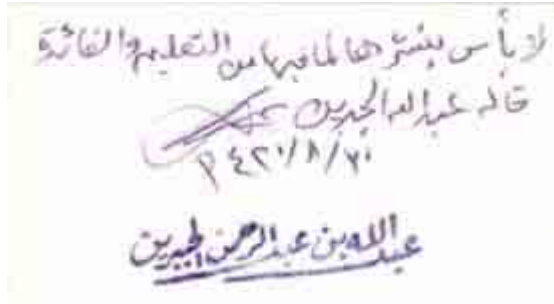 لا بأس بنشرها لما فيها من التعليم والفائدة
قاله عبدالله الجبرين
٢٠/٨/١٤٢٠
عبدالله بن عبدالرحمن الجبرين